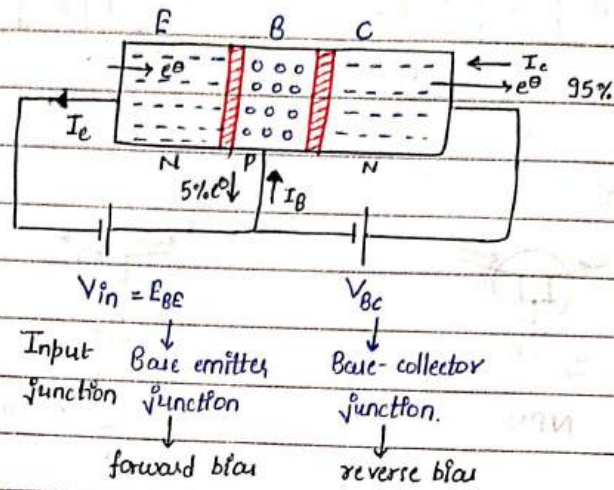 E B C
→ e⊖ ← Ic
→ e⊖ 95%
Ie
N P N
5% e⊖ ↓ ↑ IB
Vin = EBE VBC
Input junction
Base emitter junction
Base-collector junction.
forward bias reverse bias